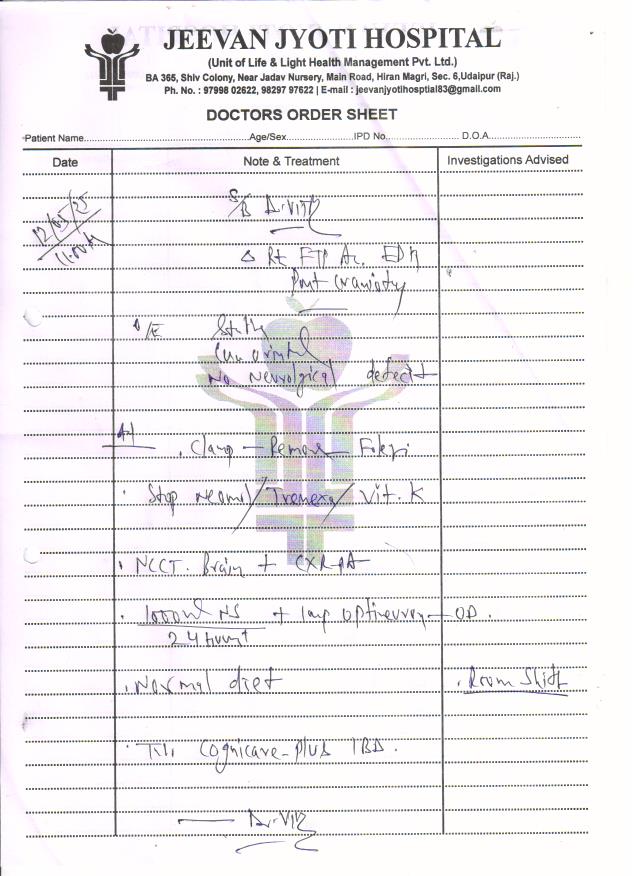 JEEVAN JYOTI HOSPITAL
(Unit of Life & Light Health Management Pvt. Ltd.)
BA 365, Shiv Colony, Near Jadav Nursery, Main Road, Hiran Magri, Sec. 6,Udaipur (Raj.)
Ph. No. : 97998 02622, 98297 97622 | E-mail : jeevanjyotihosptial83@gmail.com
DOCTORS ORDER SHEET
Patient Name Age/Sex IPD No. D.O.A
Date Note & Treatment Investigations Advised
12/05/25 S/B Dr.
11:00 AM
Δ Rt FTP Ac. EDH
Post Craniotomy
O/E
No Neurological defecit
. Clamp - Remove Foleys
. Stop / Tremexa / Vit. K
. NCCT. Brain + CXR-PA
. 1000ml NS + Inj Optineuron - OD.
24 hours
. Normal diet . Room Shift
. Cognicare-Plus 1BD.
Dr.